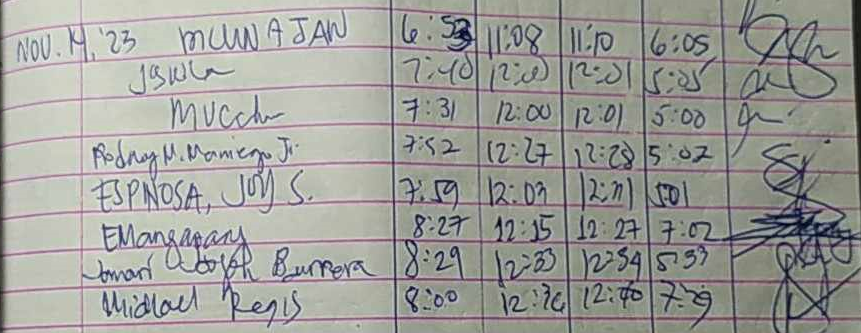 NOV. 14, '23 MUNAJAN 6:53 11:08 11:10 6:05
7:40 12:00 12:01 5:05
7:31 12:00 12:01 5:00
Rodney M. Maniego Jr. 7:52 12:27 12:28 5:02
ESPINOSA, JOY S. 7:59 12:03 5:01
EMangapary 8:27 12:15 12:27 7:02
Burrera 8:29 12:33 12:34 5:33
Michael Regis 8:00 12:40